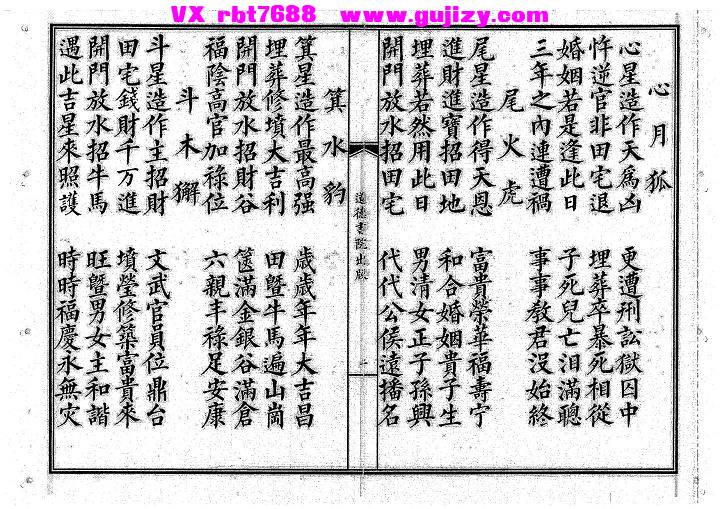 VX rbt7688 www.gujizy.com
心月狐
心星造作天為凶 更遭刑訟獄囚中
忤逆官非田宅退 埋葬卒暴死相從
婚姻若是逢此日 子死兒亡泪滿聰
三年之內連遭禍 事事教君没始終
尾火虎
尾星造作得天恩 富貴榮華福壽宁
進財進寶招田地 和合婚姻貴子生
埋葬若然用此日 男清女正子孫興
開門放水招田宅 代代公侯遠播名
道德書院出版
箕水豹
箕星造作最高强 歲歲年年大吉昌
埋葬修墳大吉利 田蠶牛馬遍山崗
開門放水招財谷 篋滿金銀谷滿倉
福陰高官加祿位 六親丰祿足安康
斗木獬
斗星造作主招財 文武官員位鼎台
田宅錢財千万進 墳塋修築富貴來
開門放水招牛馬 旺蠶男女主和諧
遇此吉星來照護 時時福慶永無灾